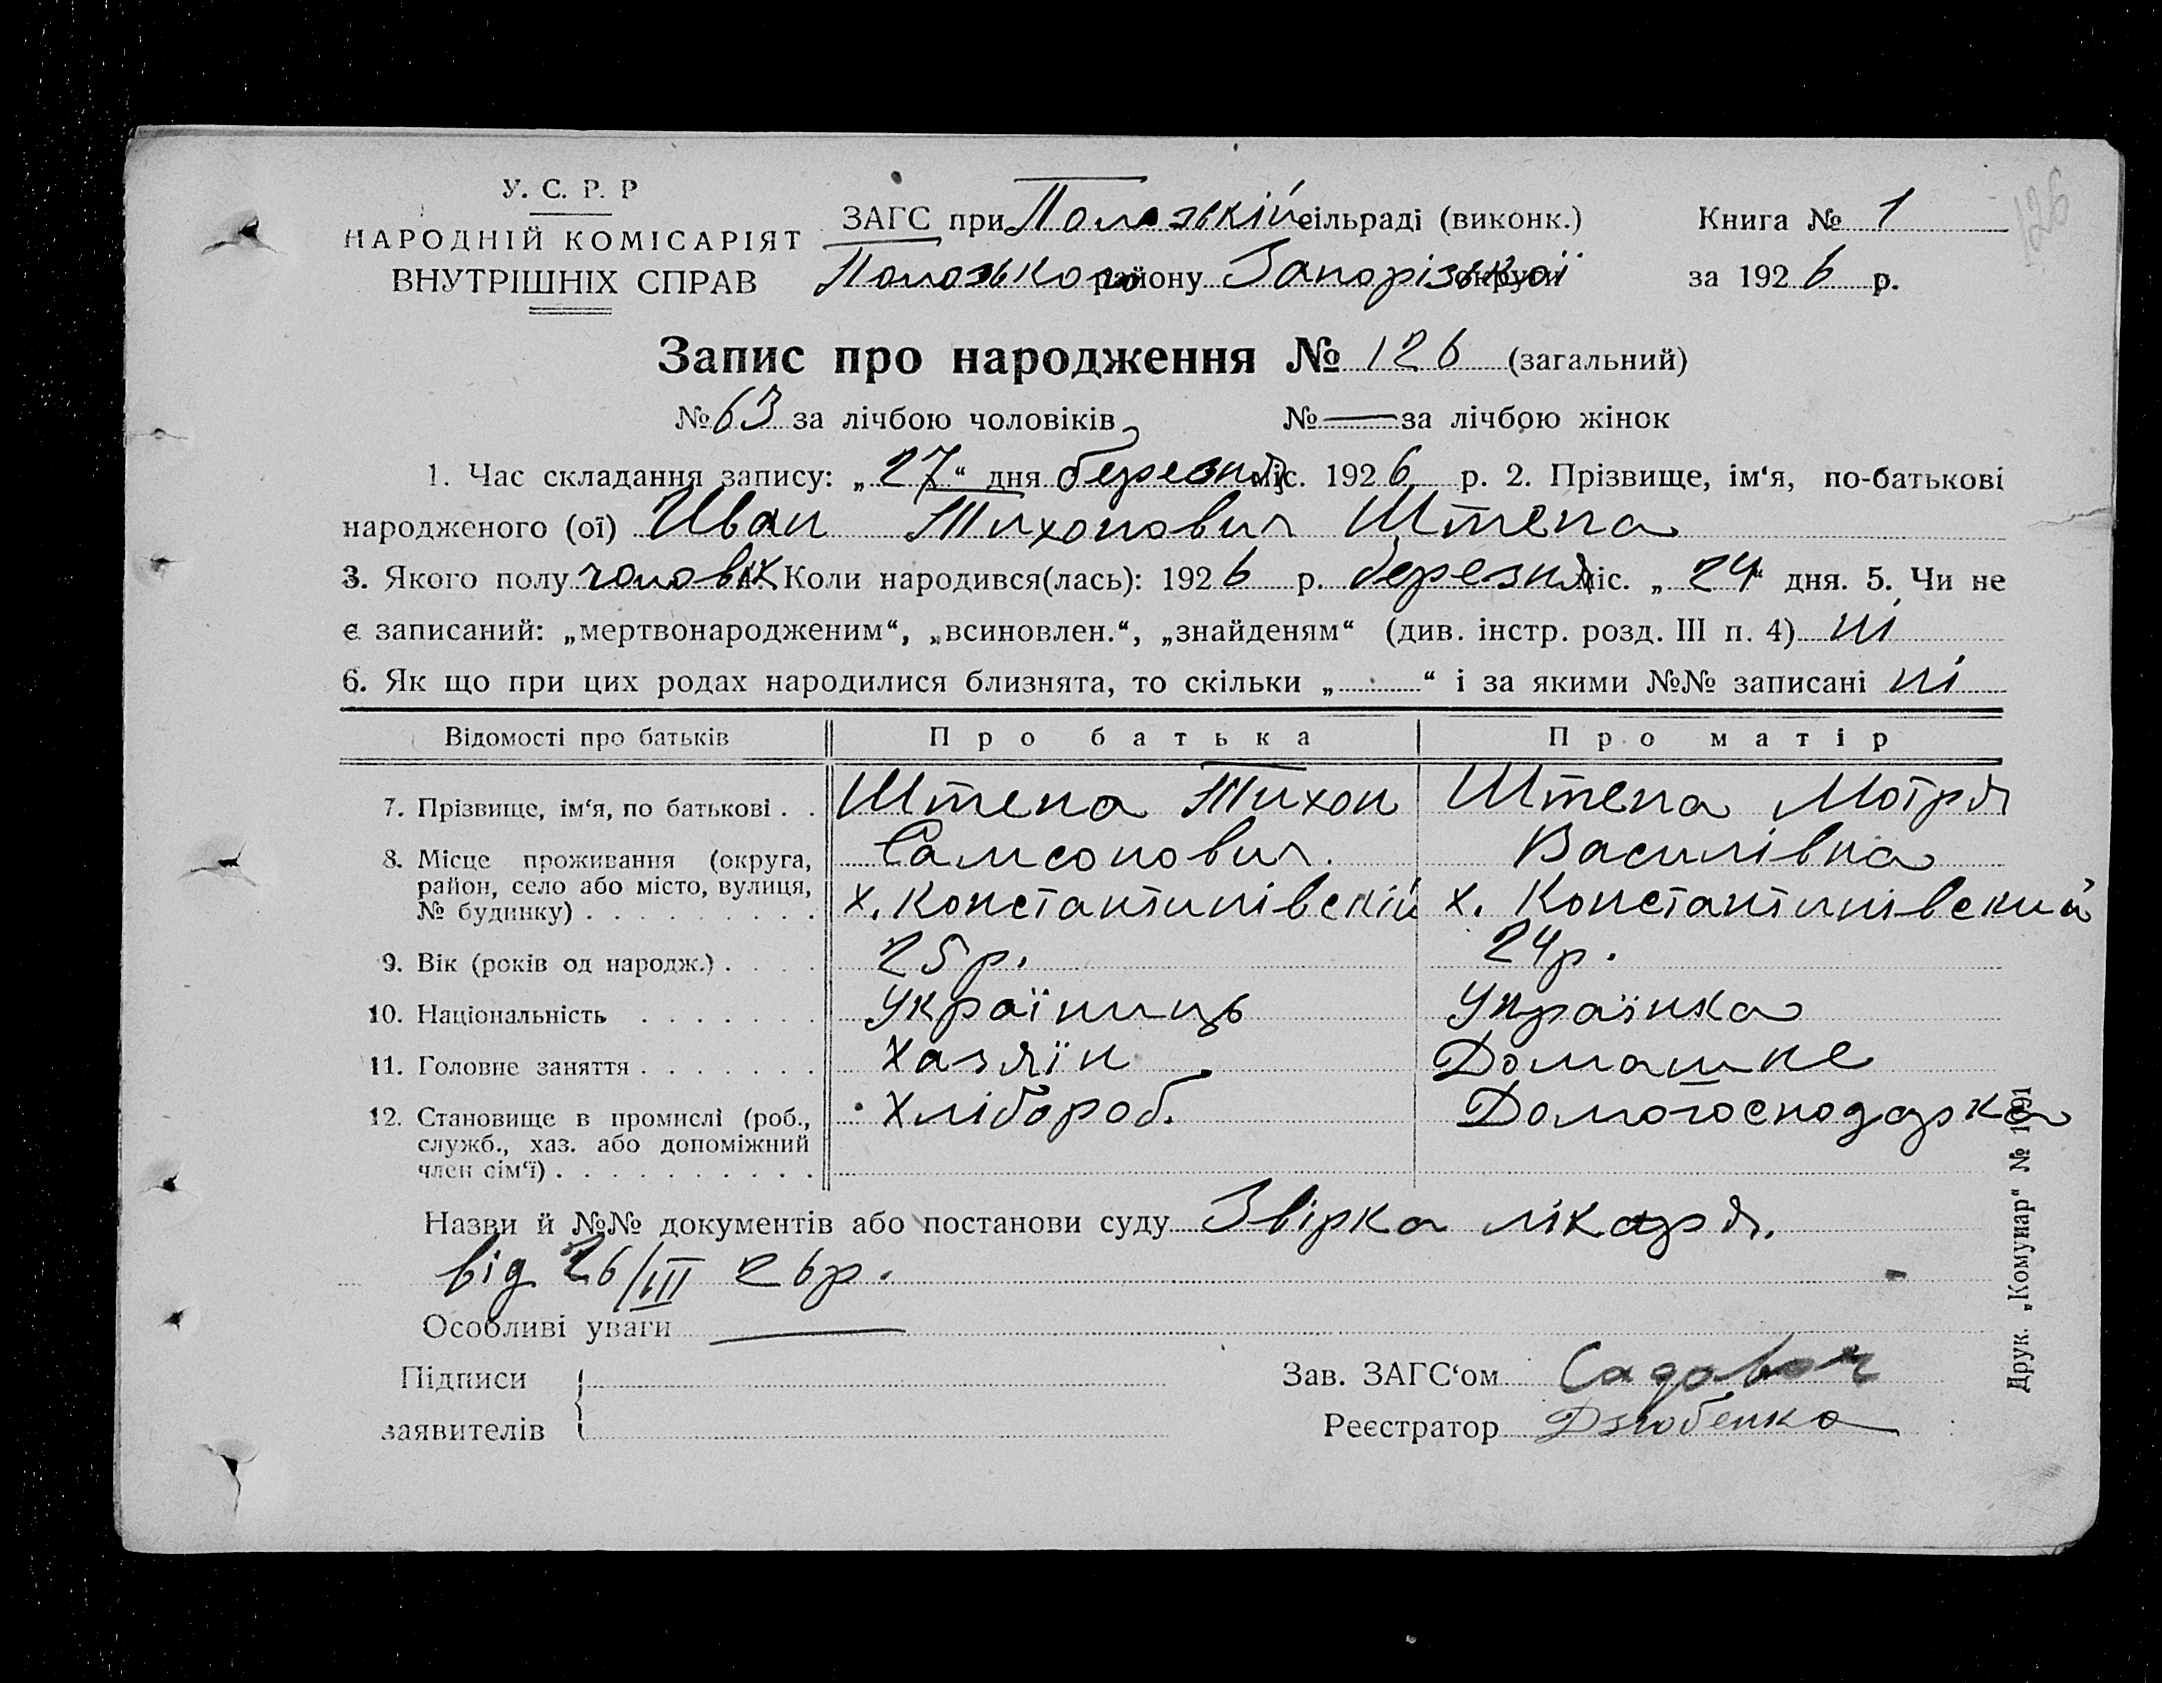 126
У. С. Р. Р
НАРОДНІЙ КОМІСАРІЯТ
ВНУТРІШНІХ СПРАВ
ЗАГС при Пологівській сільраді (виконк.)
Пологівського району Запорізької округи
Книга № 1
за 1926 р.
Запис про народження № 126 (загальний)
№ 63 за лічбою чоловіків № — за лічбою жінок
1. Час складання запису: „27“ дня березня міс. 1926 р. 2. Прізвище, ім‘я, по-батькові
народженого (ої) Иван Тихонович Штепа
3. Якого полу чоловік 4. Коли народився(лась): 1926 р. березня міс. „24“ дня. 5. Чи не
є записаний: „мертвонародженим“, „всиновлен.“, „знайденям“ (див. інстр. розд. III п. 4) ні
6. Як що при цих родах народилися близнята, то скільки „.........“ і за якими №№ записані ні
Відомості про батьків Про батька Про матір
7. Прізвище, ім‘я, по батькові . . Штепа Тихон Штепа Мотря
Самсонович. Василівна
8. Місце проживання (округа,
район, село або місто, вулиця,
№ будинку) . . . . . . . . . х. Константинівский х. Константинівский
9. Вік (років од народж.) . . . . 25 р. 24 р.
10. Національність . . . . . . . Українець Українка
11. Головне заняття . . . . . . . Хазяїн Домашнє
12. Становище в промислі (роб.,
служб., хаз. або допоміжний
член сім‘ї) . . . . . . . . . . Хлібороб. Домогосподарка
Назви й №№ документів або постанови суду Звірка лікаря.
від 26/III 26 р.
Особливі уваги —
Підписи
заявителів
Зав. ЗАГС‘ом
Реєстратор Дзюбенко
Друк. „Комунар“ № 1191